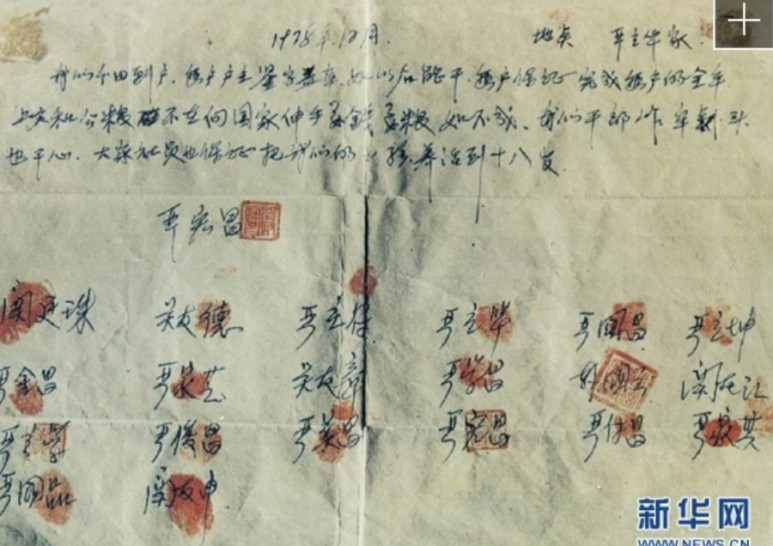 1978年12月. 地点 严立华家.
我们分田到户. 每户户主签字盖章. 如以后能干. 每户保证完成每户的全年
上交和公粮 不在向国家伸手要钱要粮 如不成. 我们干部作牢刹头
也干心. 大家社员也保证把我们的小孩养活到十八岁.
严宏昌
关廷珠 关友德 严立符 严立华 严国昌 严立坤
严金昌 严家芝 关友章 严学昌 韩国云 关友江
严立学 严俊昌 严美昌 严宏昌 严付昌 严家其
严国品 关友申
新华网
WWW.NEWS.CN